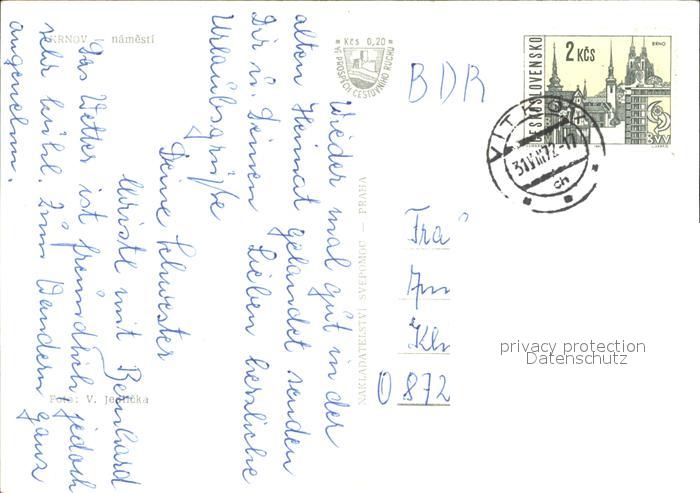 KRNOV — náměstí
Kčs 0,20
NA PROSPĚCH CESTOVNÍHO RUCHU
ČESKOSLOVENSKO
2 KČS
BRNO
BVV
VITKOV
ch
BDR
Wieder mal gut in der
alten Heimat gelandet senden
Dir u. Deinen Lieben herzliche
Urlaubsgrüße
Deine Schwester
Christl mit Bernhard
Das Wetter ist freundlich jedoch
sehr kühl. Zum Wandern ganz
angenehm.
NAKLADATELSTVÍ SVÉPOMOC — PRAHA
Foto: V. Jedlička
Fra
Am
Kl
0872
privacy protection
Datenschutz